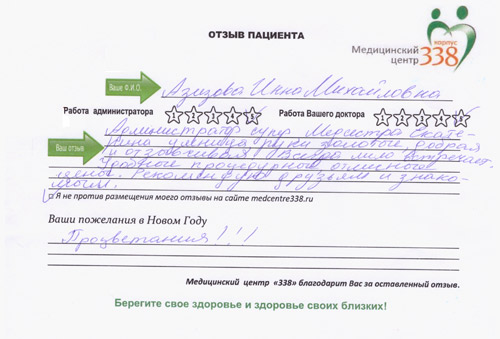 ОТЗЫВ ПАЦИЕНТА
корпус
Медицинский
центр 338
Ваше Ф.И.О.
Азизова Инна Михайловна
Работа администратора 1 2 3 4 5 Работа Вашего доктора 1 2 3 4 5
Администратор супер Медсестра Екате-
Ваш отзыв
рина умница руки золотые, добрая
и отзывчивая. Всегда мило встречает.
процедурный отличного
Рекомендую друзьям и знако-
мым.
Я не против размещения моего отзывы на сайте medcentre338.ru
Ваши пожелания в Новом Году
Процветания!!!
Медицинский центр «338» благодарит Вас за оставленный отзыв.
Берегите свое здоровье и здоровье своих близких!